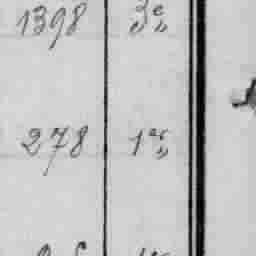 1398 3e „
278 1er „